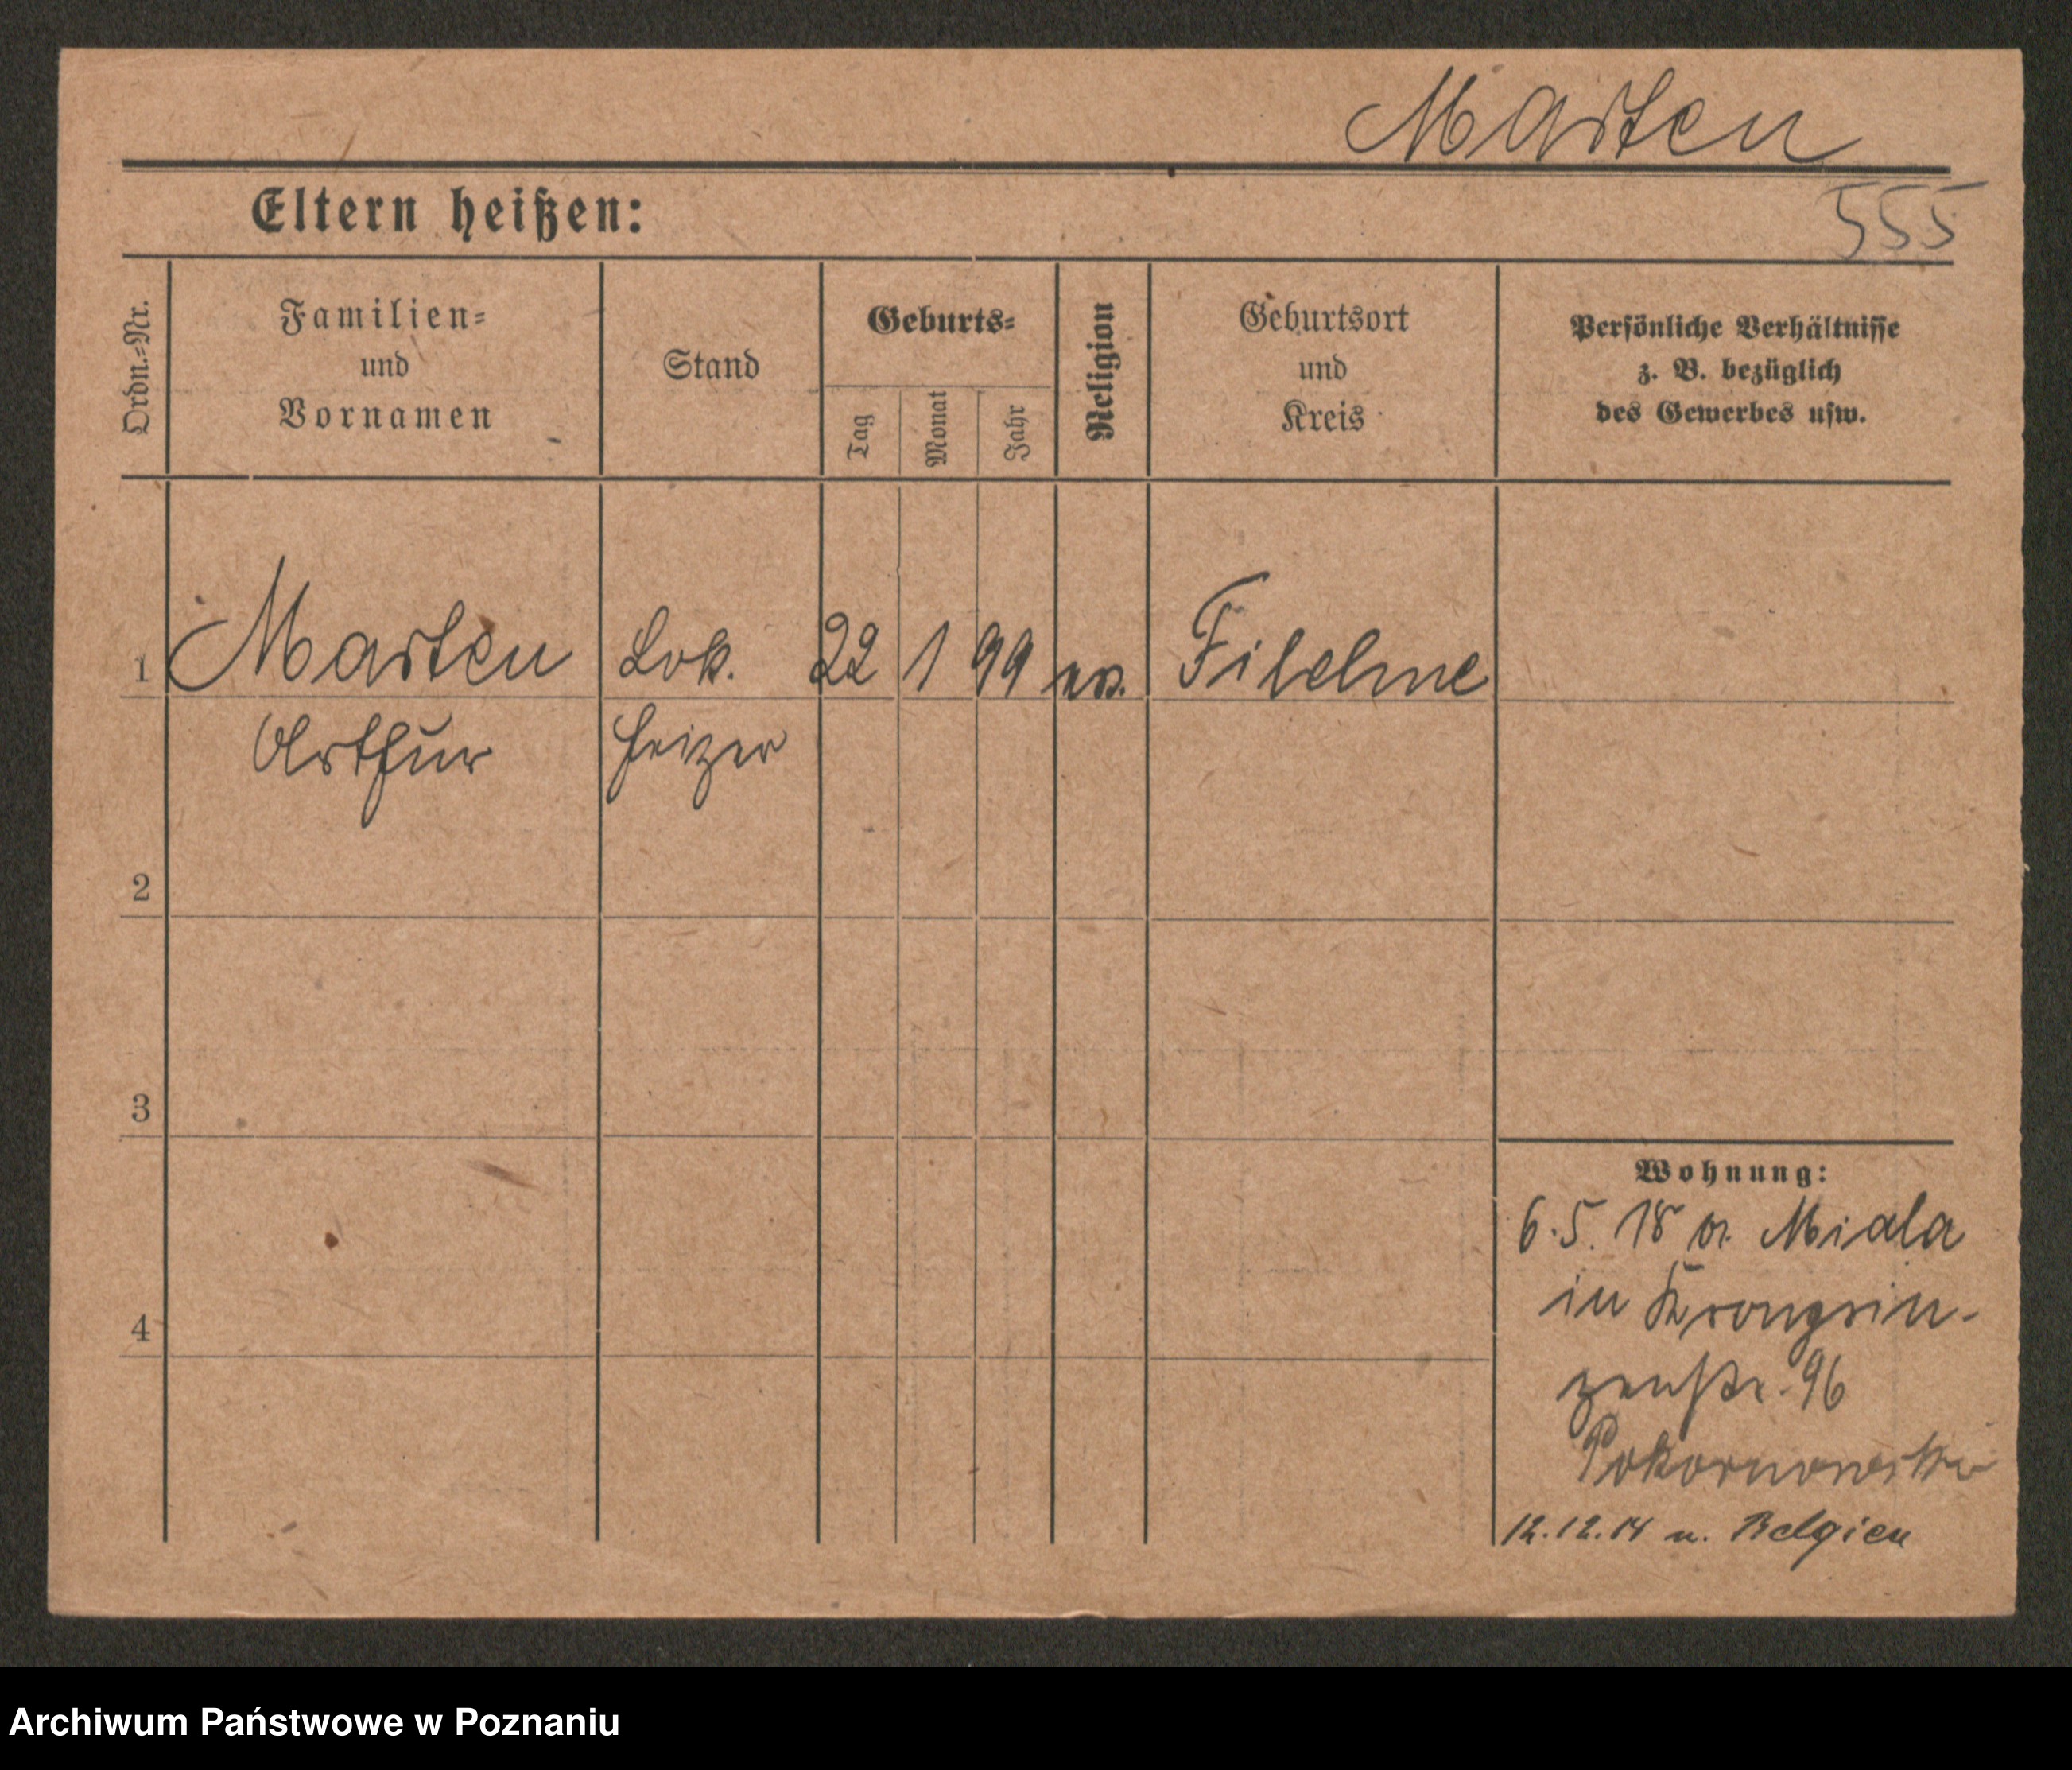 Marten
Eltern heißen:
555
Ordn.=Nr.
Familien=
und
Vornamen
Stand
Geburts=
Tag
Monat
Jahr
Religion
Geburtsort
und
Kreis
Persönliche Verhältnisse
z. B. bezüglich
des Gewerbes usw.
1 Marten Lok. 22 1 99 ev. Filehne
Arthur heizer
2
3
4
Wohnung:
6.5. 18 a. Miala
in Kronprin-
zenstr. 96
12.12.14 n. Belgien
Archiwum Państwowe w Poznaniu